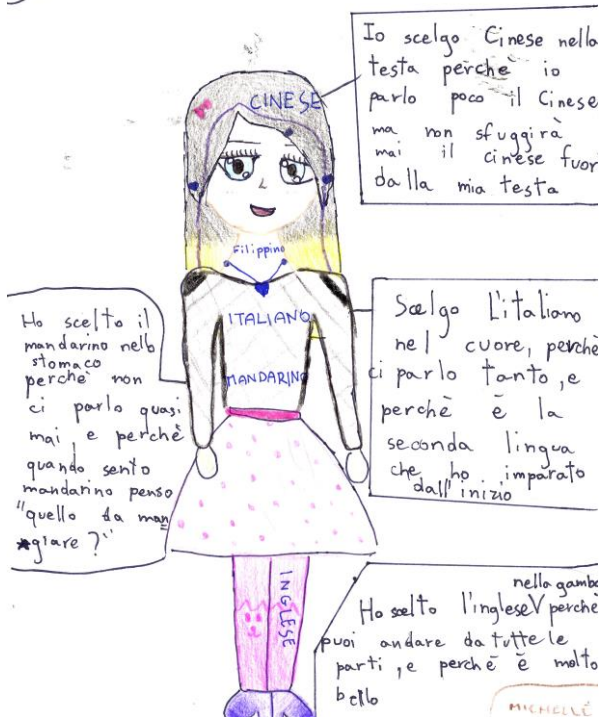 Io scelgo Cinese nella
testa perchè io
parlo poco il Cinese
ma non sfuggirà
mai il cinese fuori
dalla mia testa
CINESE
Filippino
ITALIANO
MANDARINO
Ho scelto il
mandarino nello
stomaco
perchè non
ci parlo quasi
mai, e perchè
quando sento
mandarino penso
"quello da man
giare?"
Scelgo L'italiano
nel cuore, perchè
ci parlo tanto, e
perchè è la
seconda lingua
che ho imparato
dall'inizio
INGLESE
nella gamba
Ho scelto l'inglese V perchè
puoi andare da tutte le
parti, e perchè è molto
bello
MICHELLE